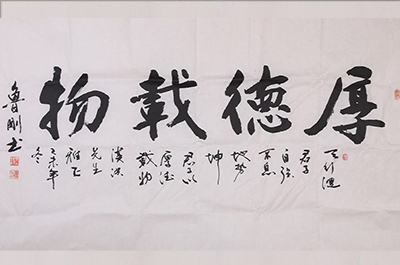 厚德載物
天行健
君子
自强
不息
地势
坤
君子以
厚德
載物
先生
雅正
乙未年
冬
魯剛书